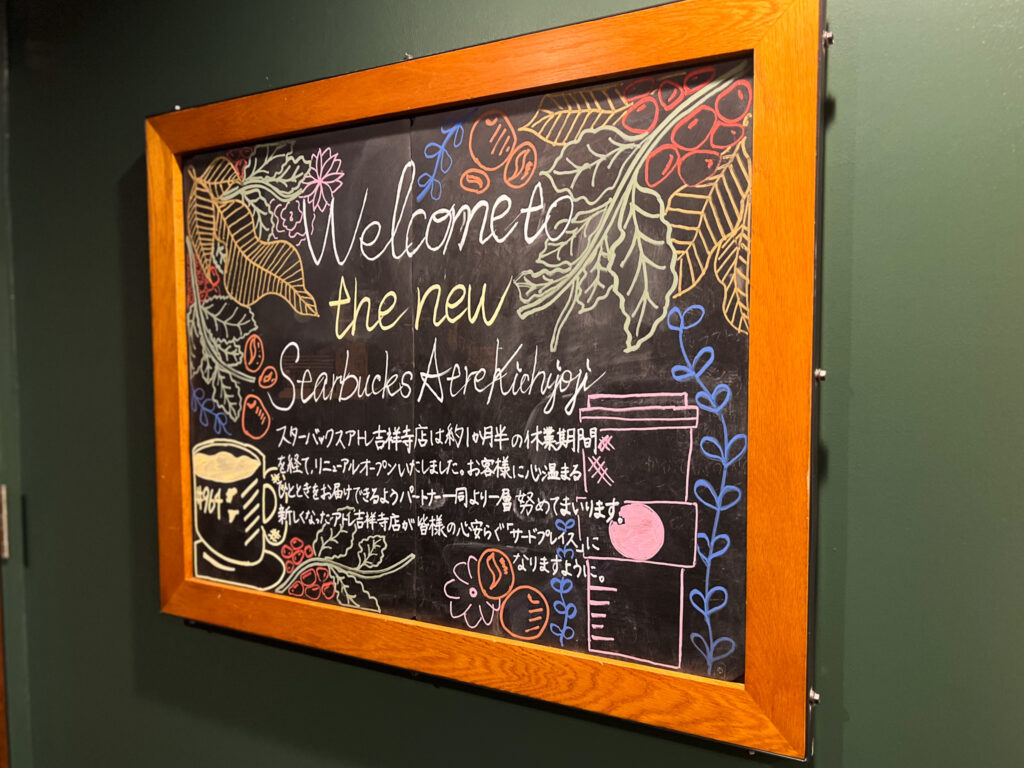 Welcome to
the new
Starbucks Atre Kichijoji
スターバックスアトレ吉祥寺店は約1か月半の休業期間
を経て、リニューアルオープンいたしました。お客様に心温まる
ひとときをお届けできるようパートナー一同より一層、努めてまいります。
新しくなったアトレ吉祥寺店が皆様の心安らぐ「サードプレイス」に
なりますように。